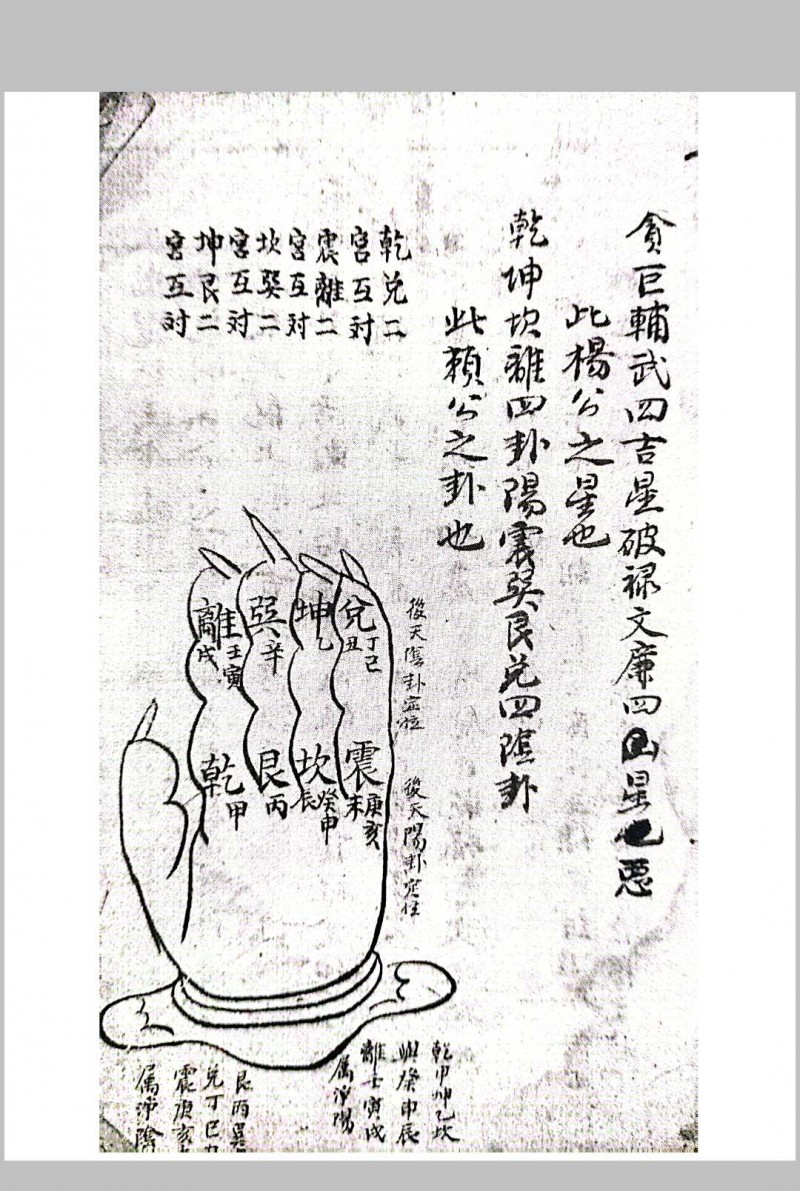 貪巨輔武四吉星破祿文廉四凶星惡
此楊公之星也
乾坤坎離四卦陽震巽艮兌四陰卦
此賴公之卦也
乾兌二
宮互対
震離二
宮互対
坎巽二
宮互対
坤艮二
宮互対
後天陰卦定位
後天陽卦定位
兌丁巳丑
坤乙
巽辛
離壬寅戌
震庚亥未
坎癸申辰
艮丙
乾甲
乾甲坤乙坎
癸申辰
離壬寅戌
属淨陽
艮丙巽
兌丁巳
震庚亥
属淨陰